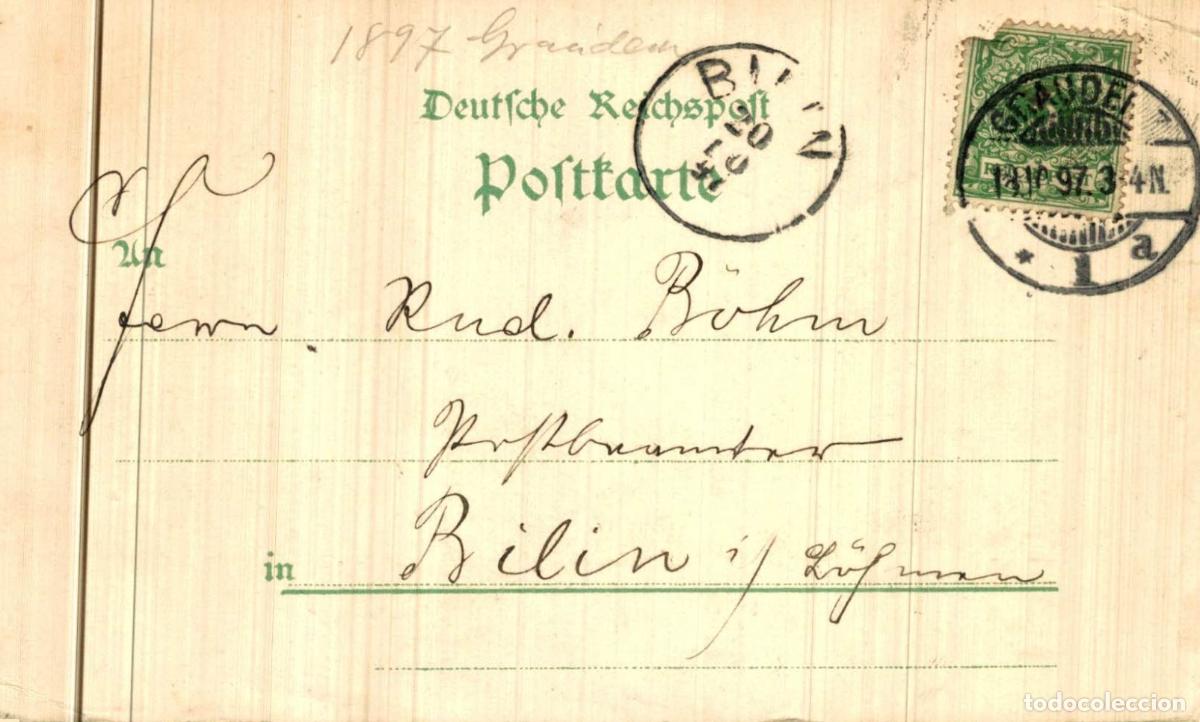 1897 Graudenz
Deutsche Reichspost
Postkarte
BILIN
20
10
97
GRAUDENZ
18.10.97. 3-4N.
* 1 a
An
Herrn Rud. Böhm
Postbeamter
in Bilin i/ Böhmen
todocoleccion